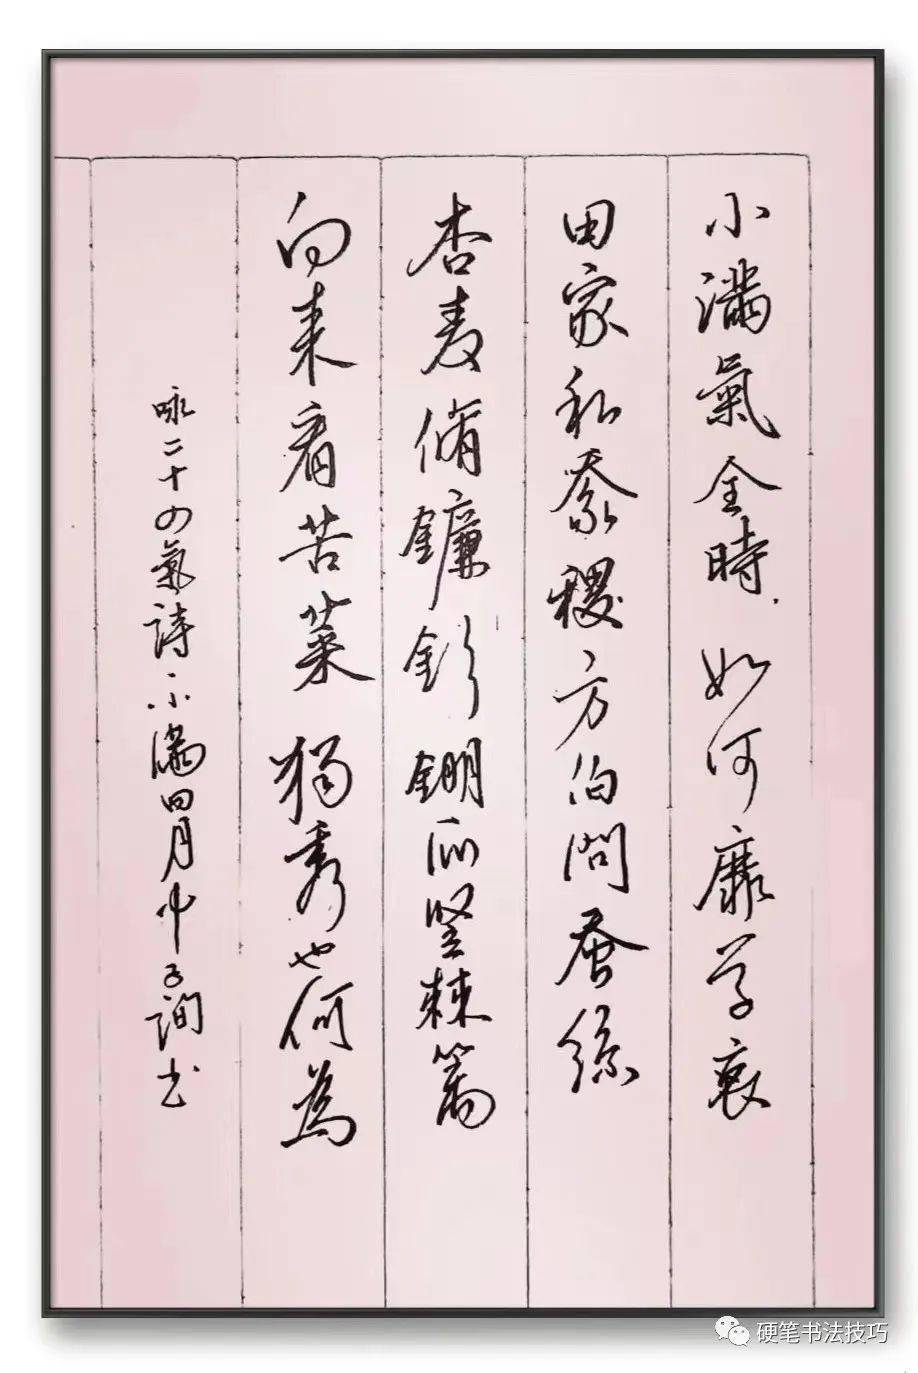 小滿氣全時如何靡草衰
田家私黍稷方伯問蚕絲
杏麦脩鐮釤鋤瓜竪棘篱
向来看苦菜獨秀也何為
咏二十四氣詩小滿四月中子詢书
硬笔书法技巧